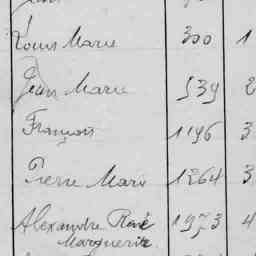 Louis Marie 300 1
Jean Marie 539 2
François 1196 3
Pierre Marie 1264 3
Alexandre René 1973 4
Marguerite